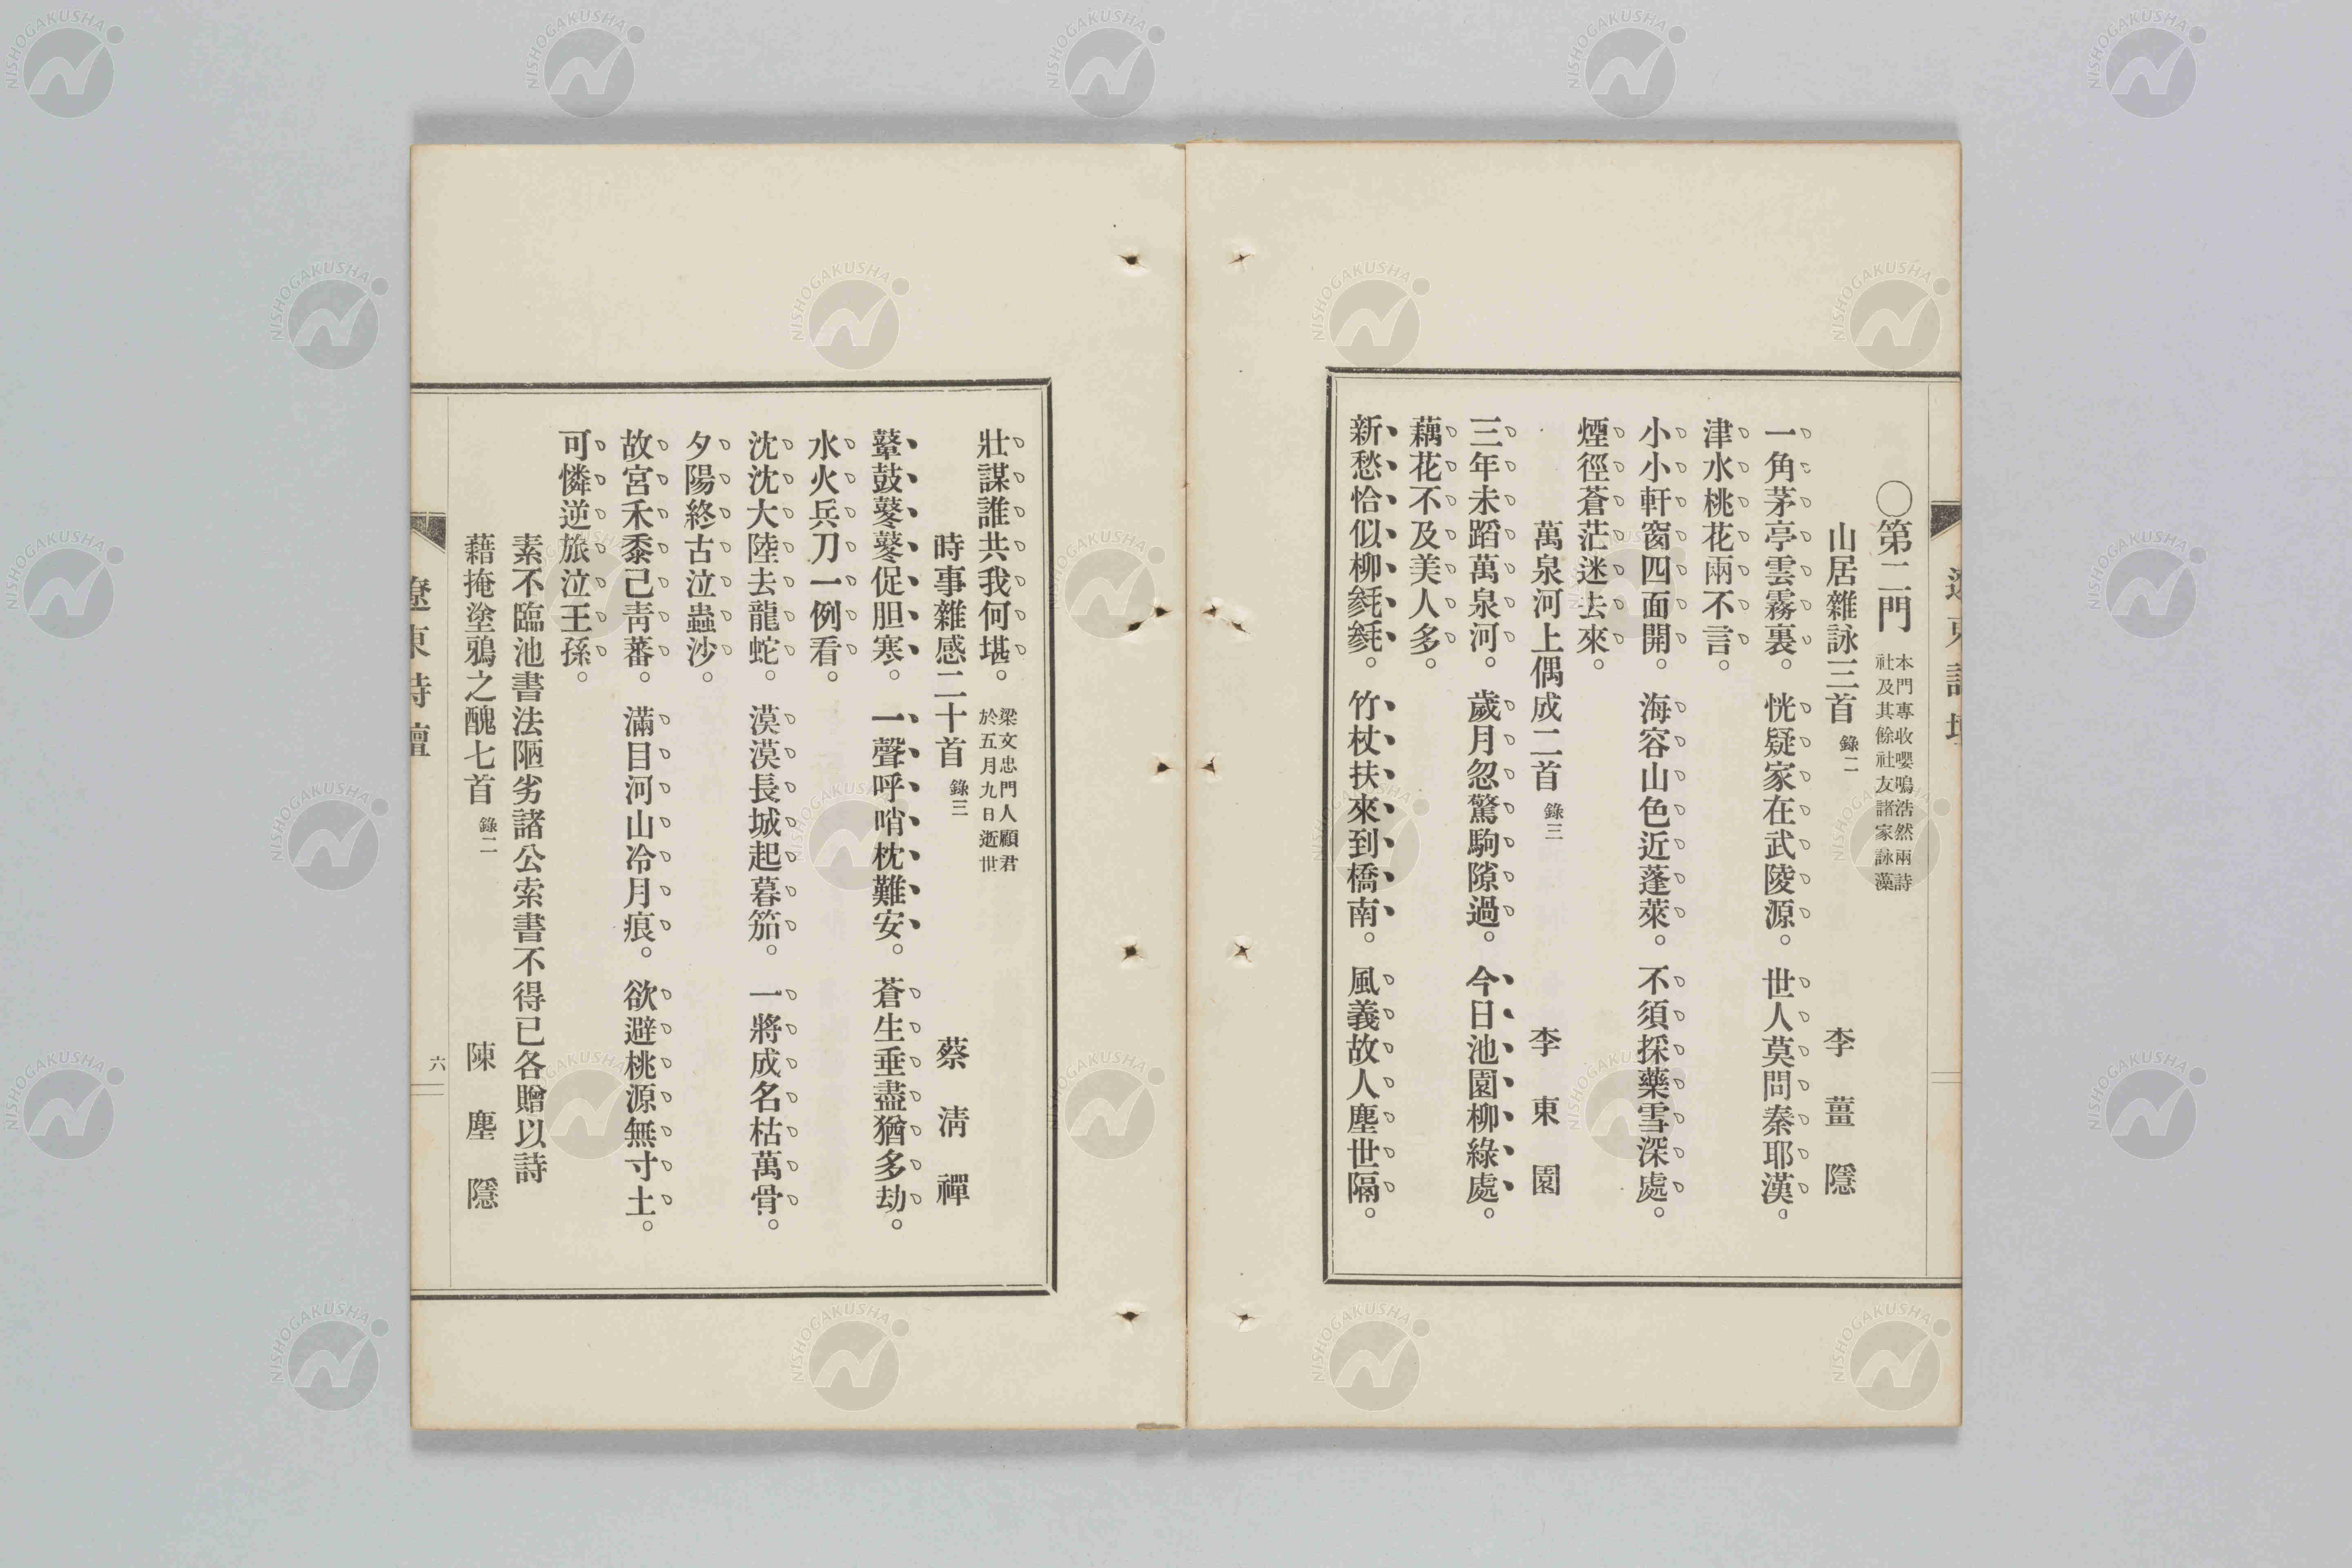 遼東詩壇
〇第二門 本門專收嚶鳴浩然兩詩社及其餘社友諸家詠藻
山居雜詠三首 錄二 李薑隱
一角茅亭雲霧裏。恍疑家在武陵源。世人莫問秦耶漢。
津水桃花兩不言。
小小軒窗四面開。海容山色近蓬萊。不須採藥雪深處。
煙徑蒼茫迷去來。
萬泉河上偶成二首 錄三 李東園
三年未蹈萬泉河。歲月忽驚駒隙過。今日池園柳綠處。
藕花不及美人多。
新愁恰似柳毿毿。竹杖扶來到橋南。風義故人塵世隔。
壯謀誰共我何堪。 梁文忠門人顧君於五月九日逝世
時事雜感二十首 錄三 蔡淸禪
鼙鼓鼕鼕促胆寒。一聲呼哨枕難安。蒼生垂盡猶多劫。
水火兵刀一例看。
沈沈大陸去龍蛇。漠漠長城起暮笳。一將成名枯萬骨。
夕陽終古泣蟲沙。
故宮禾黍己靑蕃。滿目河山冷月痕。欲避桃源無寸土。
可憐逆旅泣王孫。
素不臨池書法陋劣諸公索書不得已各贈以詩
藉掩塗鴉之醜七首 錄二 陳塵隱
遼東詩壇
六
NISHOGAKUSHA